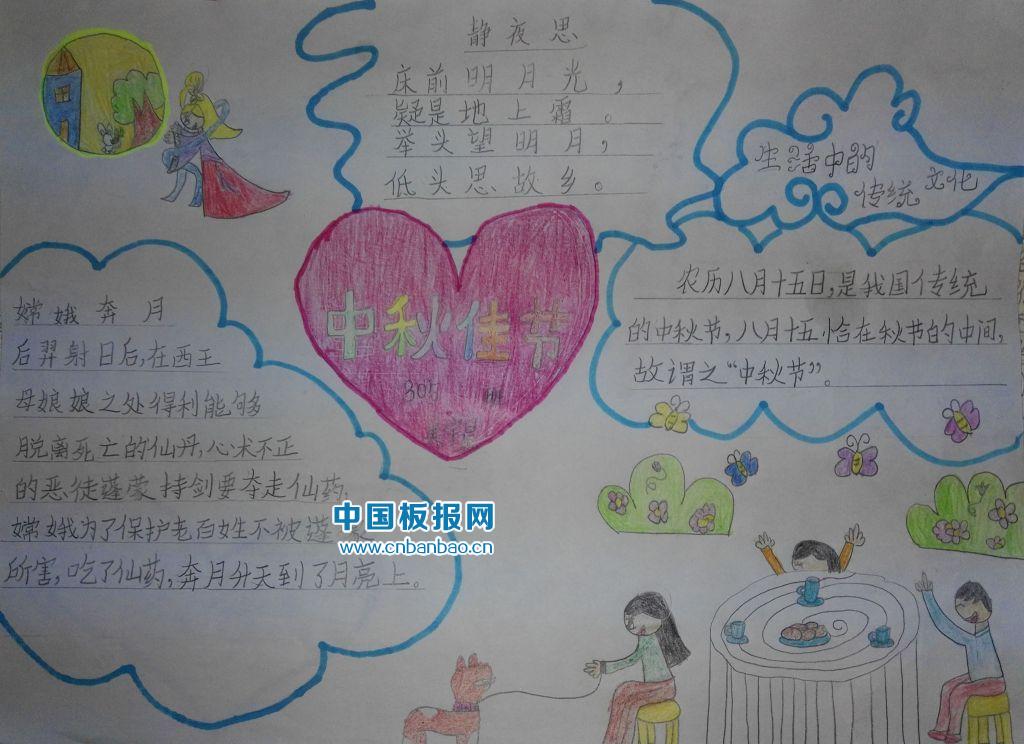 静夜思
床前明月光，
疑是地上霜。
举头望明月，
低头思故乡。
生活中的
传统文化
中秋佳节
305 班
嫦娥奔月
后羿射日后，在西王
母娘娘之处得利能够
脱离死亡的仙丹，心术不正
的恶徒蓬蒙持剑要夺走仙药，
嫦娥为了保护老百姓不被蓬
所害，吃了仙药，奔月升天到了月亮上。
农历八月十五日，是我国传统
的中秋节，八月十五恰在秋节的中间，
故谓之“中秋节”。
中国板报网
www.cnbanbao.cn